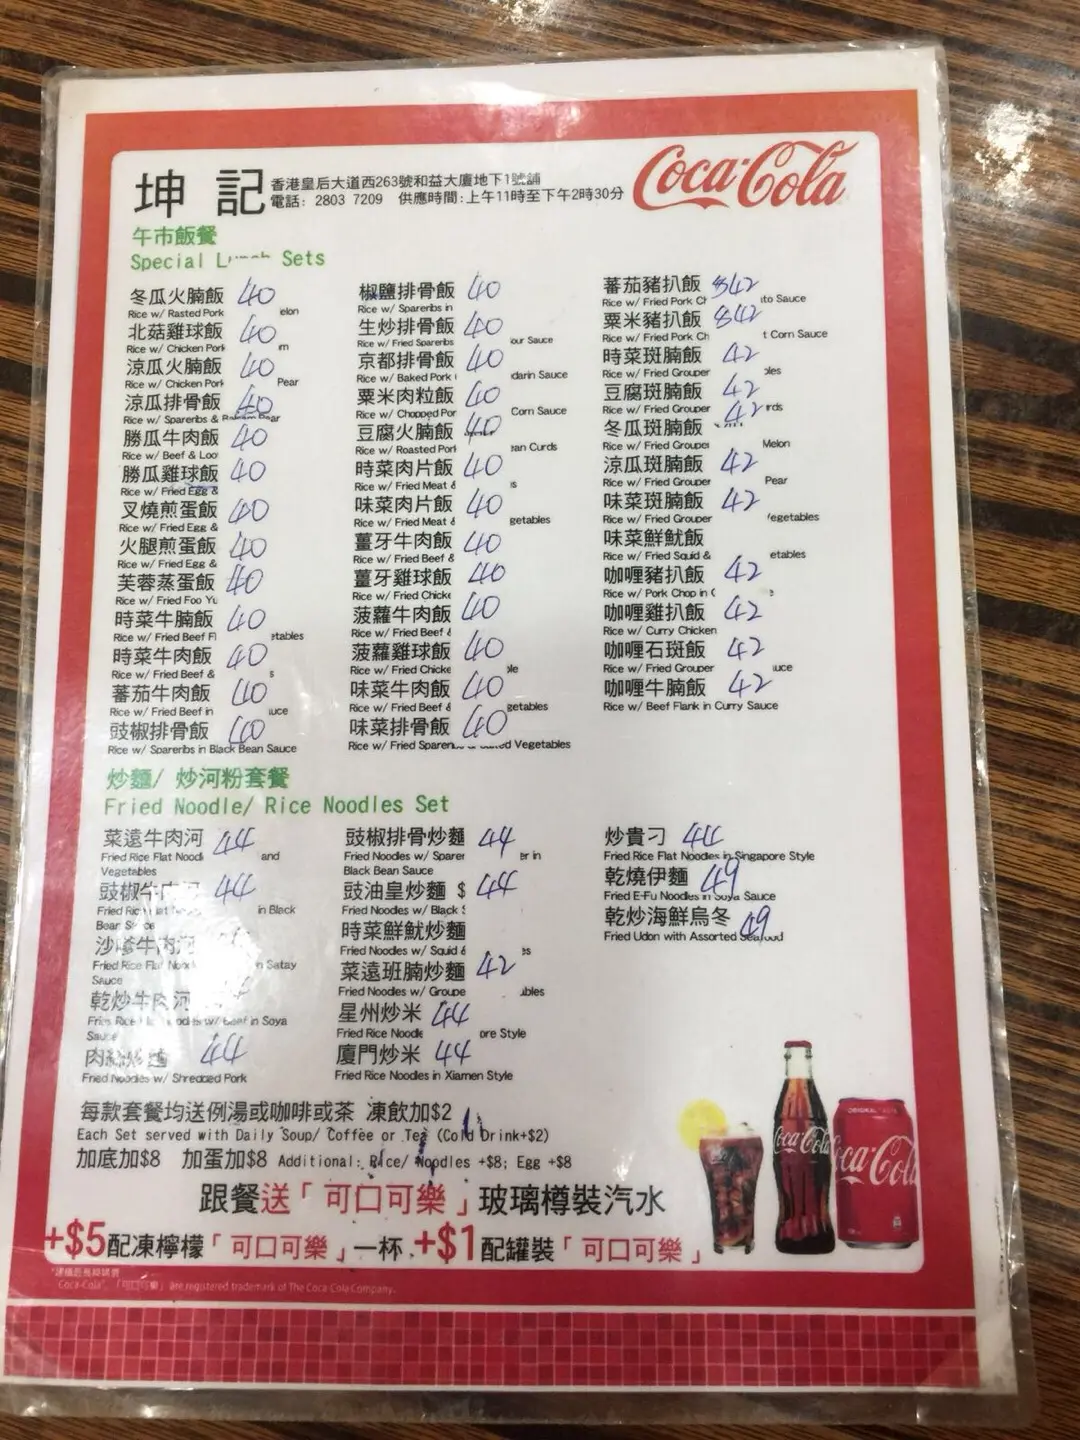 坤記
香港皇后大道西263號和益大廈地下1號舖
電話: 2803 7209 供應時間:上午11時至下午2時30分
Coca-Cola
午市飯餐
Special Sets
冬瓜火腩飯 40
Rice w/ Rasted Pork elon
北菇雞球飯 40
Rice w/ Chicken Pork m
涼瓜火腩飯 40
Rice w/ Chicken Pork Pear
涼瓜排骨飯 40
Rice w/ Spareribs & Pear
勝瓜牛肉飯 40
Rice w/ Beef & Loo
勝瓜雞球飯 40
Rice w/ Fried Egg &
叉燒煎蛋飯 40
Rice w/ Fried Egg &
火腿煎蛋飯 40
Rice w/ Fried Egg &
芙蓉蒸蛋飯 40
Rice w/ Fried Foo Yu
時菜牛腩飯 40
Rice w/ Fried Beef Fl etables
時菜牛肉飯 40
Rice w/ Fried Beef & s
蕃茄牛肉飯 40
Rice w/ Fried Beef in uce
豉椒排骨飯 40
Rice w/ Spareribs in Black Bean Sauce
椒鹽排骨飯 40
Rice w/ Spareribs in
生炒排骨飯 40
Rice w/ Fried Spareribs our Sauce
京都排骨飯 40
Rice w/ Baked Pork darin Sauce
粟米肉粒飯 40
Rice w/ Chopped Por Corn Sauce
豆腐火腩飯 40
Rice w/ Roasted Pork ean Curds
時菜肉片飯 40
Rice w/ Fried Meat & s
味菜肉片飯 40
Rice w/ Fried Meat & getables
薑牙牛肉飯 40
Rice w/ Fried Beef &
薑牙雞球飯 40
Rice w/ Fried Chicke
菠蘿牛肉飯 40
Rice w/ Fried Beef &
菠蘿雞球飯 40
Rice w/ Fried Chicke le
味菜牛肉飯 40
Rice w/ Fried Beef & getables
味菜排骨飯 40
Rice w/ Fried Vegetables
蕃茄豬扒飯 $42
Rice w/ Fried Pork Ch to Sauce
粟米豬扒飯 $42
Rice w/ Fried Pork Ch t Corn Sauce
時菜斑腩飯 42
Rice w/ Fried Grouper les
豆腐斑腩飯 42
Rice w/ Fried Grouper rds
冬瓜斑腩飯 42
Rice w/ Fried Grouper Melon
涼瓜斑腩飯 42
Rice w/ Fried Grouper Pear
味菜斑腩飯 42
Rice w/ Fried Grouper egetables
味菜鮮魷飯
Rice w/ Fried Squid & etables
咖喱豬扒飯 42
Rice w/ Pork Chop in
咖喱雞扒飯 42
Rice w/ Curry Chicken
咖喱石斑飯 42
Rice w/ Fried Grouper uce
咖喱牛腩飯 42
Rice w/ Beef Flank in Curry Sauce
炒麵/ 炒河粉套餐
Fried Noodle/ Rice Noodles Set
菜遠牛肉河 44
Fried Rice Flat Noodl and
Vegetables
豉椒牛肉河 44
in Black
沙嗲牛肉河
Fried Rice Flat Satay
Sauce
乾炒牛肉河
Beef in Soya
Sauce
肉絲炒麵 44
Fried Noodles w/ Shredded Pork
豉椒排骨炒麵 44
Fried Noodles w/ Sparer er in
Black Bean Sauce
豉油皇炒麵 $44
Fried Noodles w/ Black S
時菜鮮魷炒麵
Fried Noodles w/ Squid & s
菜遠班腩炒麵 42
Fried Noodles w/ Groupe bles
星州炒米 44
Fried Rice Noodle ore Style
廈門炒米 44
Fried Rice Noodles in Xiamen Style
炒貴刁 44
Fried Rice Flat Noodles in Singapore Style
乾燒伊麵 49
Fried E-Fu Noodles in Soya Sauce
乾炒海鮮烏冬 49
Fried Udon with Assorted Seafood
每款套餐均送例湯或咖啡或茶 凍飲加$2
Each Set served with Daily Soup/ Coffee or Tea (Cold Drink+$2)
加底加$8 加蛋加$8 Additional: Rice/ Noodles +$8; Egg +$8
跟餐送「可口可樂」玻璃樽裝汽水
+$5配凍檸檬「可口可樂」一杯,+$1配罐裝「可口可樂」
"Coca-Cola", 「可口可樂」 are registered trademark of The Coca-Cola Company.
ORIGINAL TASTE
Coca-Cola
Coca-Cola